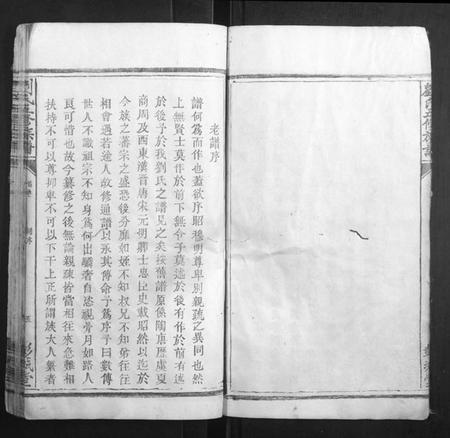 老譜序
譜何為而作也蓋欲序昭穆明尊卑別親疏之異同也然
上無賢士莫作於前下無令子莫述於後有作於前有述
於後予於我劉氏之譜見之矣按舊譜原係陶唐歷虞夏
商周及西東漢晉唐宋元明卿士忠臣史載昭然以迄於
今族之蕃宗之盛恐後分靡如姪不知叔兄不知弟往往
相會遇若途人故修通譜以承其傳命予為序予曰數傳
世人不識祖宗不知身為何出驕者自恣視骨月如路人
良可惜也故今纂修之後無論親疏皆當相往來急難相
扶持不可以尊抑卑不可以下干上正所謂族大人繁者